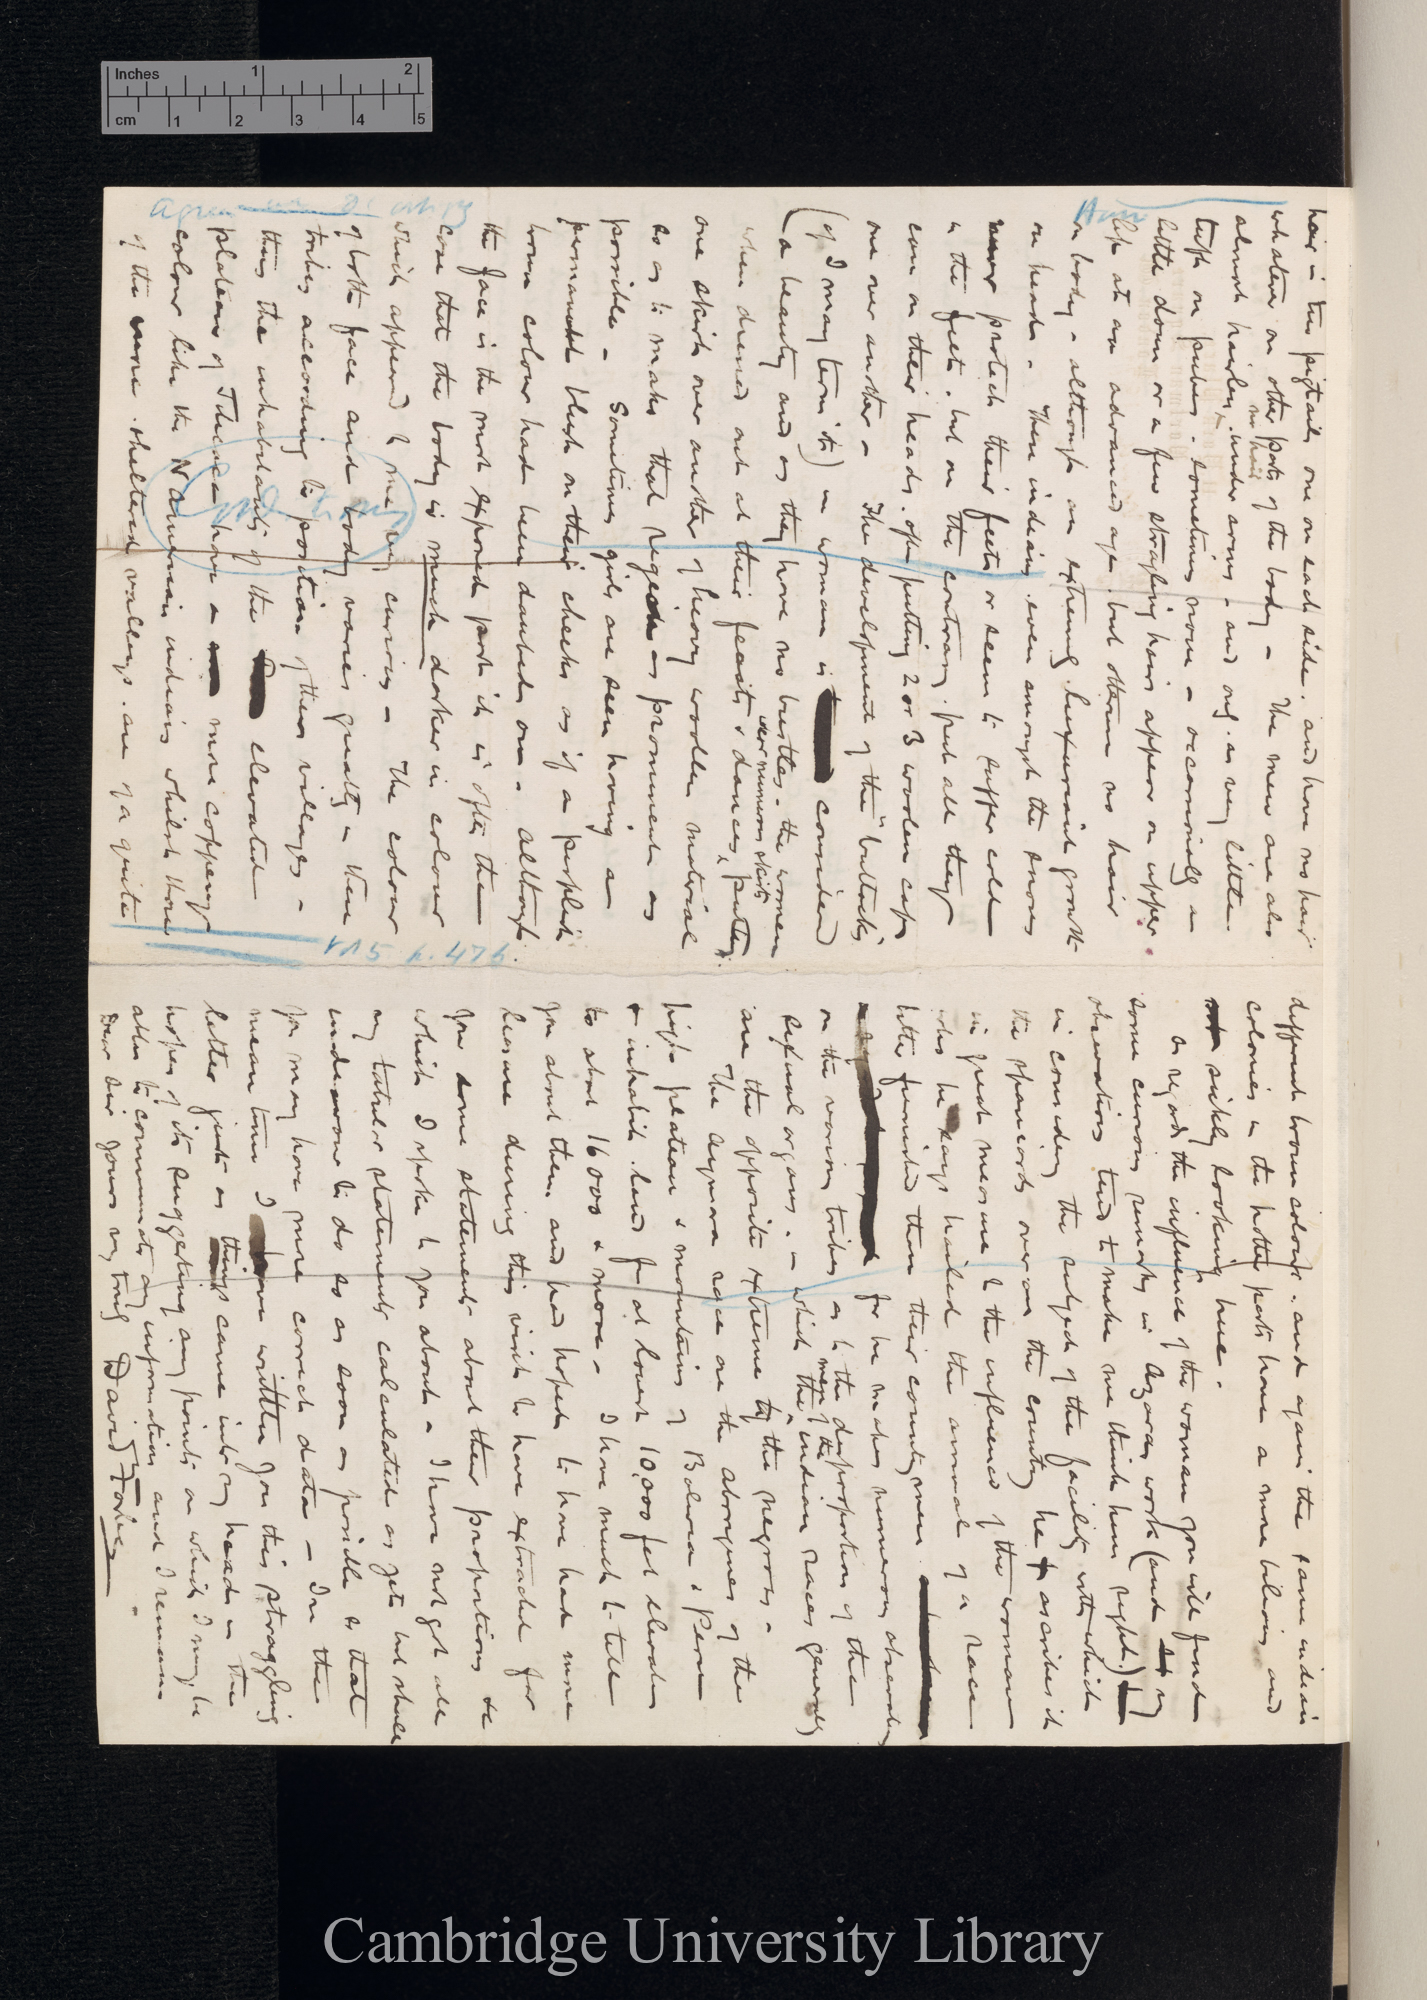 Inches 1 2
cm 1 2 3 4 5
Hair
hair in two pigtails one on each side, and have no hair
whatever on other parts of the body – The men are also
almost hairless, no hair under arms – and only a very little
tuft on pubes. sometimes none – occasionally a
little down or a few straggling hairs appear on upper
lip at an advanced age. but otherwise no hair
on body – although an extremely luxuriant growth
on head – These indians even amongst the snows
never protect their feet or seem to suffer cold
in the feet. but on the contrary. put all they
can on their heads. often putting 2 or 3 woolen caps
one over another – The development of the "buttocks
(if I may term it) in woman is considered
(a beauty and as they have no bustles – the women
when dressed out at their feasts & dances, wear numerous skirts putting
one skirt over another of heavy woollen material
so as to make that region as prominent as
possible – Sometimes girls are seen having a
permanent blush on their cheeks as if a purplish
brown colour had been daubed on – although
the face is the most exposed part it is often the
case that the body is much darker in colour
which appeared to me very curious – The colour
of both face and body varies greatly in these
tribes according to position of their villages –
thus the inhabitants of the elevated
plateaus of have a more coppery
colour like the N American indians whilst those
of the more sheltered valleys are of a quite
V. 5 p. 476.
different brown colour. and again the same indian
colonies in the hotter parts have a more bilious and
sickly looking hue.
As regards the influence of the woman you will find
some curious remarks in Azaras work (and my
observations tend to make me think him right.)
in considering the subject of the facility with which
the spaniards overran the country he ascribes it
in great measure to the influence of the woman
who he says hailed the arrival of a race
better furnished than their countrymen.
for he makes numerous observations
on the various tribes as to the disproportion of the
sexual organs. – in which the men of the indian races generally
are the opposite extreme to the negroes –
The Aymara race are the aborigines of the
high plateau & mountains of Bolivia & Peru
& inhabit land from at lowest 10,000 feet elevation
to about 16000 & more – I have much to tell
you about them and had hoped to have had more
leisure during this visit to have extracted for
you some statements about their proportions &c
which I spoke to you about – I have not got all
my tabular statements calculated as yet but shall
endeavour to do so as soon as possible so that
you may have more correct data – In the
mean time I have written you this straggling
letter just as things came into my head in the
hopes of its suggesting any points on which I may be
able to communicate any information and I remain
Dear Sir Yours very truly David Forbes –
Cambridge University Library